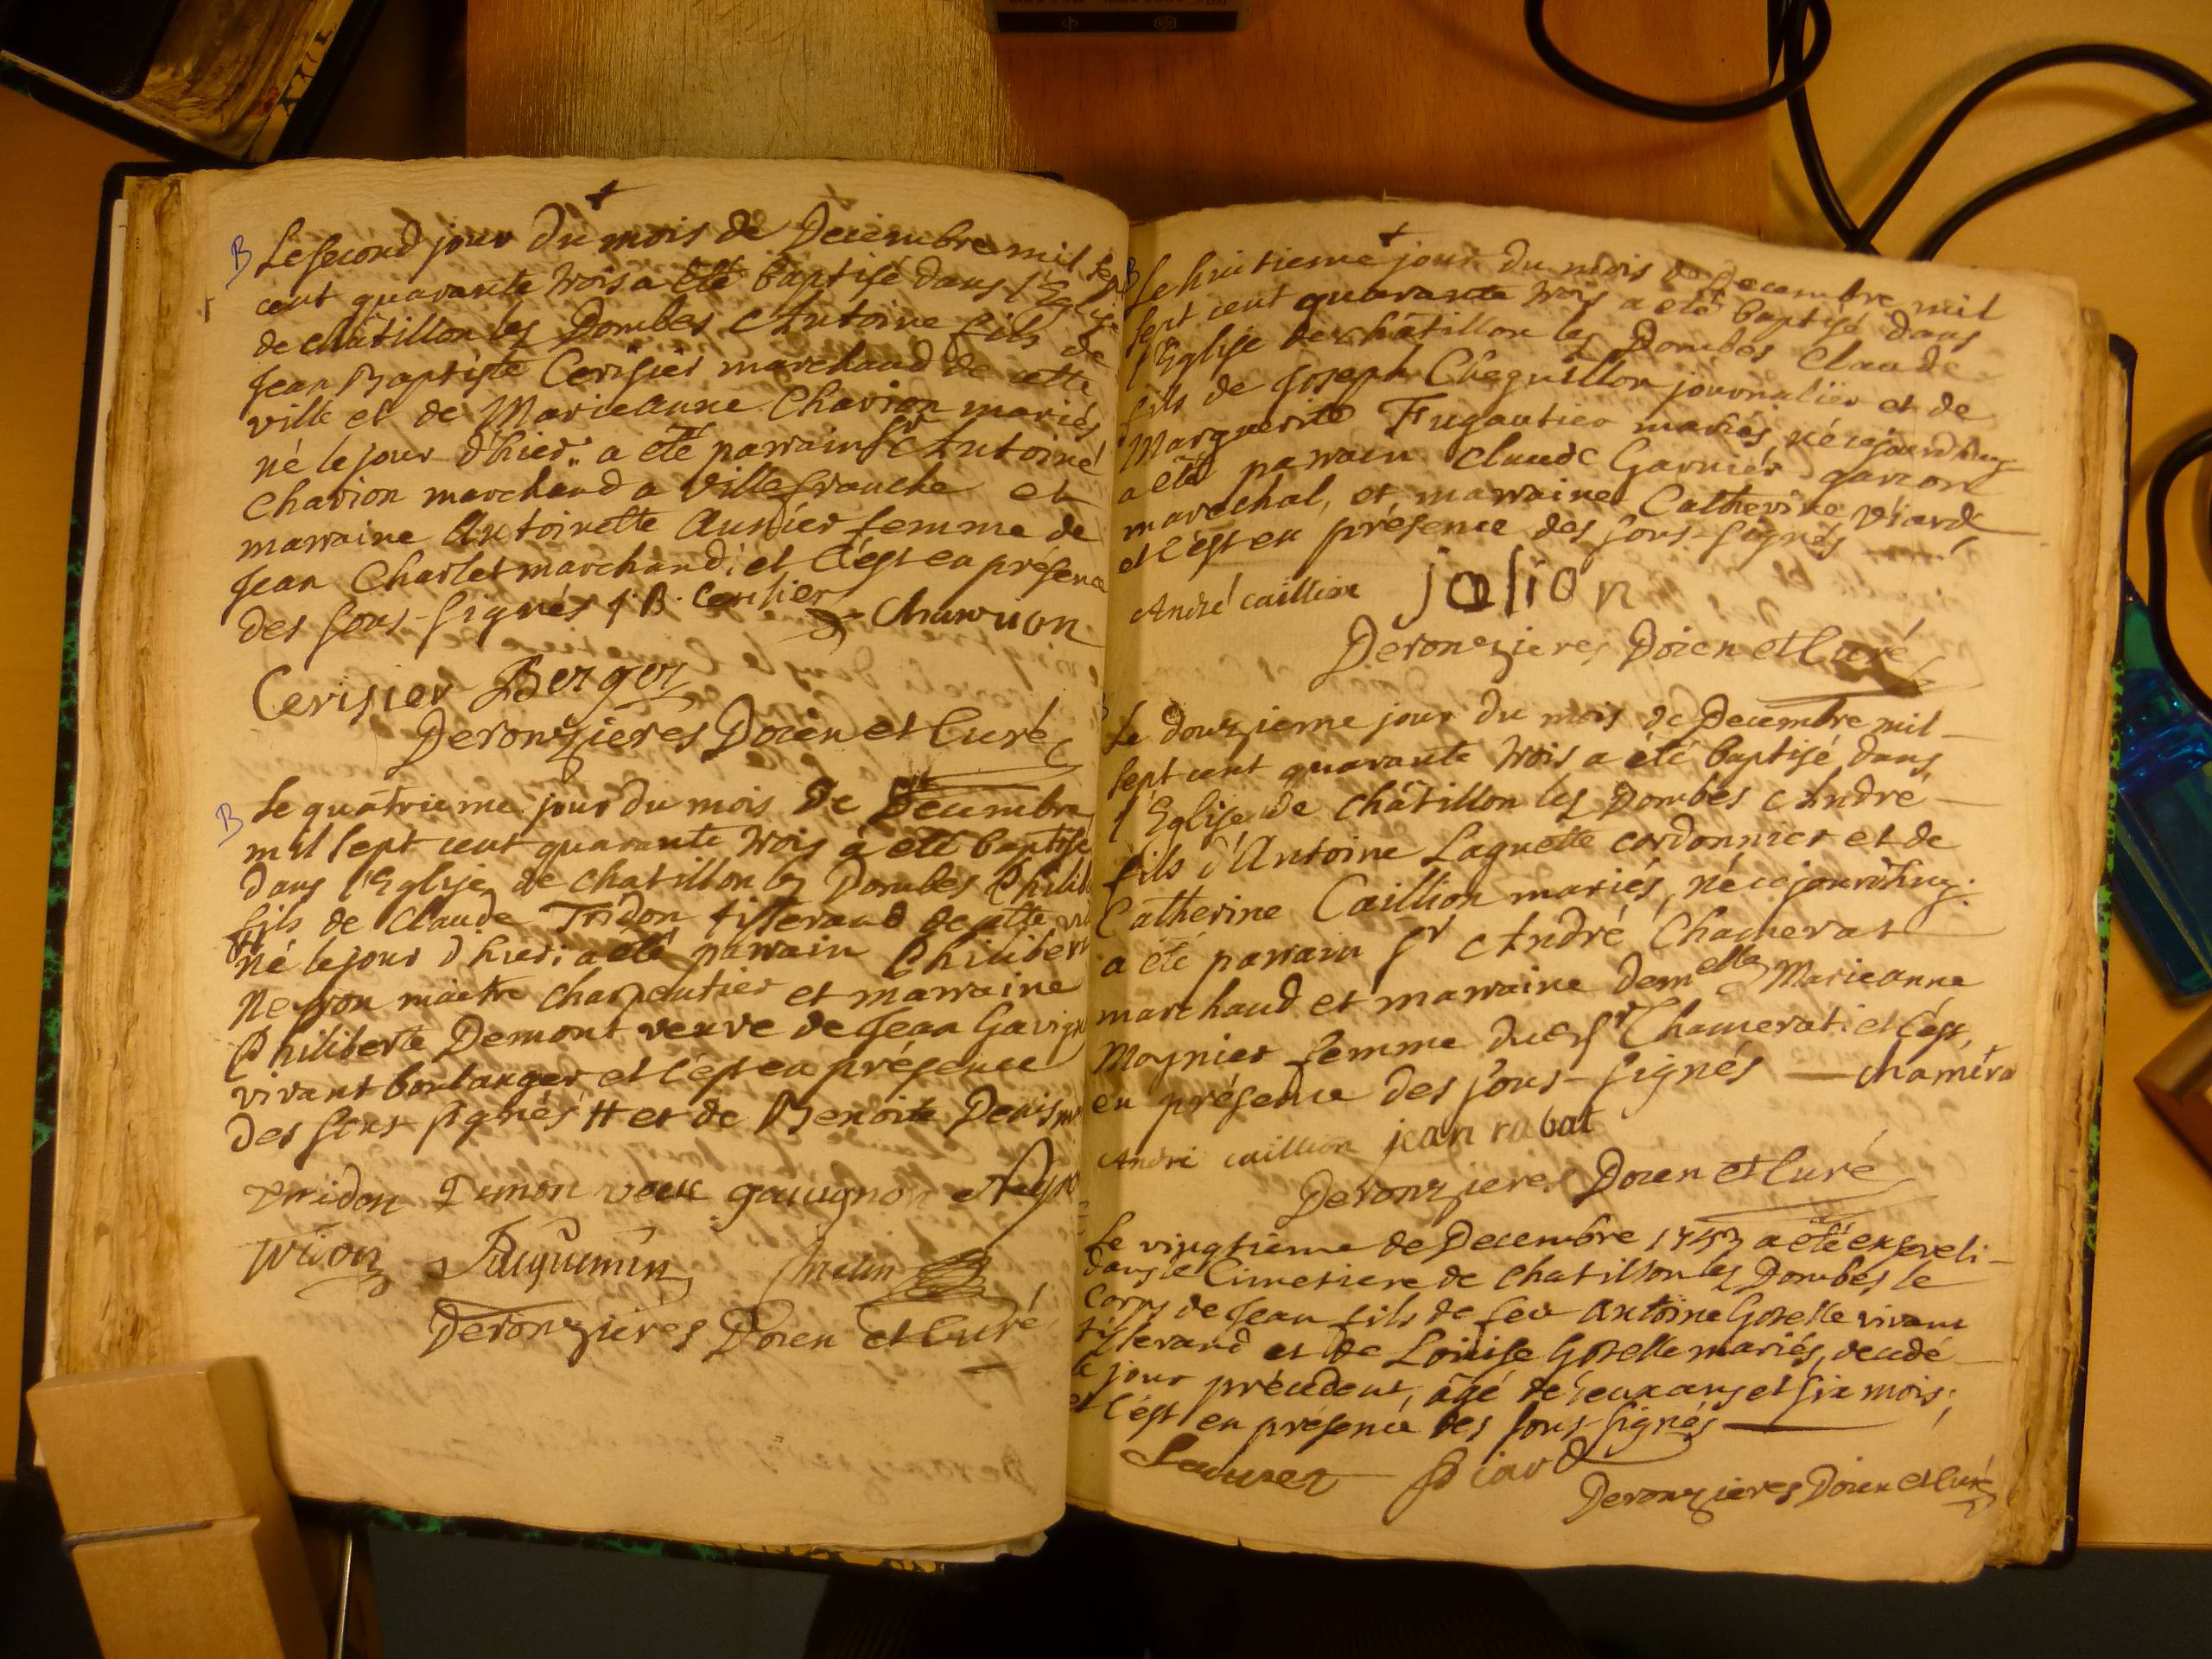 B Le second jour du mois de Decembre mil sept
cent quarante trois a été baptisé dans l'Eglise
de châtillon les Dombes Antoine fils de
Jean Baptiste Cerisier marchand de cette
ville et de Marieanne Charion mariés
né le jour d'hier.. a été parrain Sr Antoine
Charion marchand a Villefranche et
marraine Antoinette Aunier femme de
Jean Charlet marchand; et c'est en présence
des sous-signés J. B. Cerisier Charrion
Cerisier Berger
Deronzieres Doien et Curé
B Le quatrieme jour du mois de Decembre
mil sept cent quarante trois a été baptisé
dans l'Eglise de chatillon les Dombes Philib
fils de Claude Tridon tisserand de cette
né le jour d'hier; a été parrain Philibert
Neyron maitre charpentier et marraine
Philiberte Demont veuve de Jean Gavign
vivant boulanger et c'est en présence
des sous-signés # et de Benoite Denis
Demon gauignon
Deronzieres Doien et Curé
B Le huitieme jour du mois de Decembre mil
sept cent quarante trois a été baptisé dans
l'Eglise de châtillon les Dombes Claude
fils de Joseph Cheguillon journalier et de
Marguerite Fugautier mariés, né cejourdhuy
a été parrain Claude Garnier garzon
marechal, et marraine Catherine Viard,
et c'est en présence des sous-signés
André caillion jolion
Deronzieres Doien et Curé
Le douzieme jour du mois de Decembre mil
sept cent quarante trois a été baptisé dans
l'Eglise de châtillon les Dombes André
fils d'Antoine Laguette cordonnier et de
Catherine Caillion mariés, né cejourdhuy:
a été parrain Sr André Chamerat
marchand et marraine demelle Marieanne
Moynier femme dud. Sr Chamerat: et c'est,
en présence des sous-signés chamera
André caillion jean rabat
Deronzieres Doien et Curé
Le vingtieme de Decembre 1743 a été enseveli
dans le Cimetiere de chatillon les Dombes le
corps de Jean fils de feu Antoine Gorelle vivant
tisserand et de Louise Gorelle mariés, decedé
le jour précédent, âgé de deux ans et six mois;
et c'est en présence des sous-signés
Deronzieres Doien et Curé